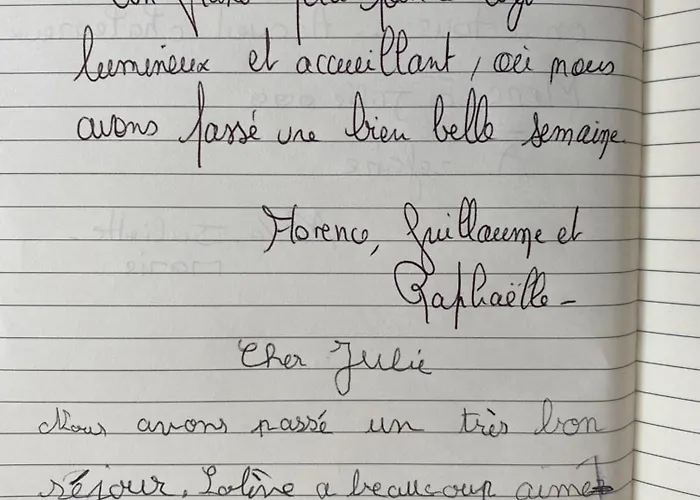 lumineux et accueillant, où nous
avons passé une bien belle semaine
Florence, Guillaume et
Raphaëlle -
Cher Julie
Nous avons passé un très bon
séjour. a beaucoup aimé